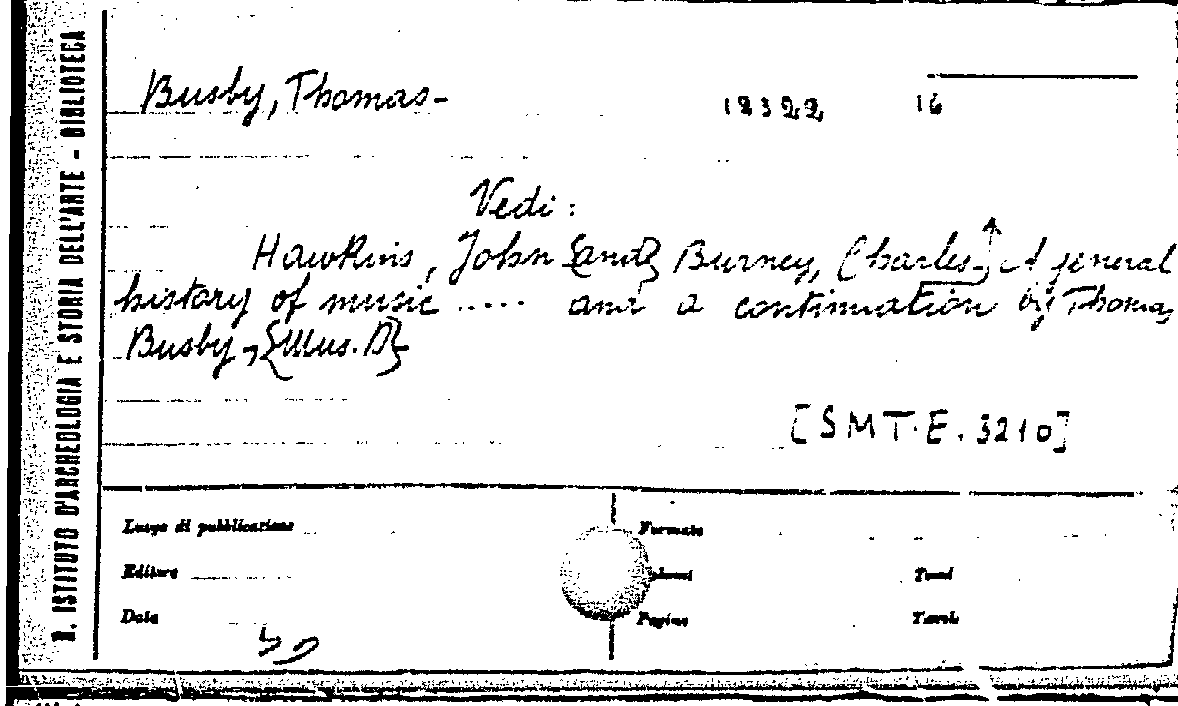 R. ISTITUTO D'ARCHEOLOGIA E STORIA DELL'ARTE - BIBLIOTECA
Busby, Thomas- 12322 16
Vedi:
Hawkins, John [and] Burney, Charles-, A general
history of music ..... and a continuation by Thomas
Busby - [Mus. D]
[SMT. E. 3210]
Luogo di pubblicazione Formato
Editore Volumi Tomi
Data Pagine Tavole